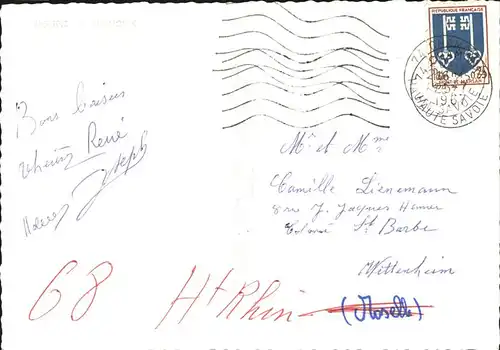 RÉPUBLIQUE FRANÇAISE
0,25
HAUTE SAVOIE
Bons baisers
René
Joseph
Mr et Mme
Camille Lienemann
rue J. Jacques Henner
Colonie Ste Barbe
Wittenheim
(Moselle)
68 Ht Rhin